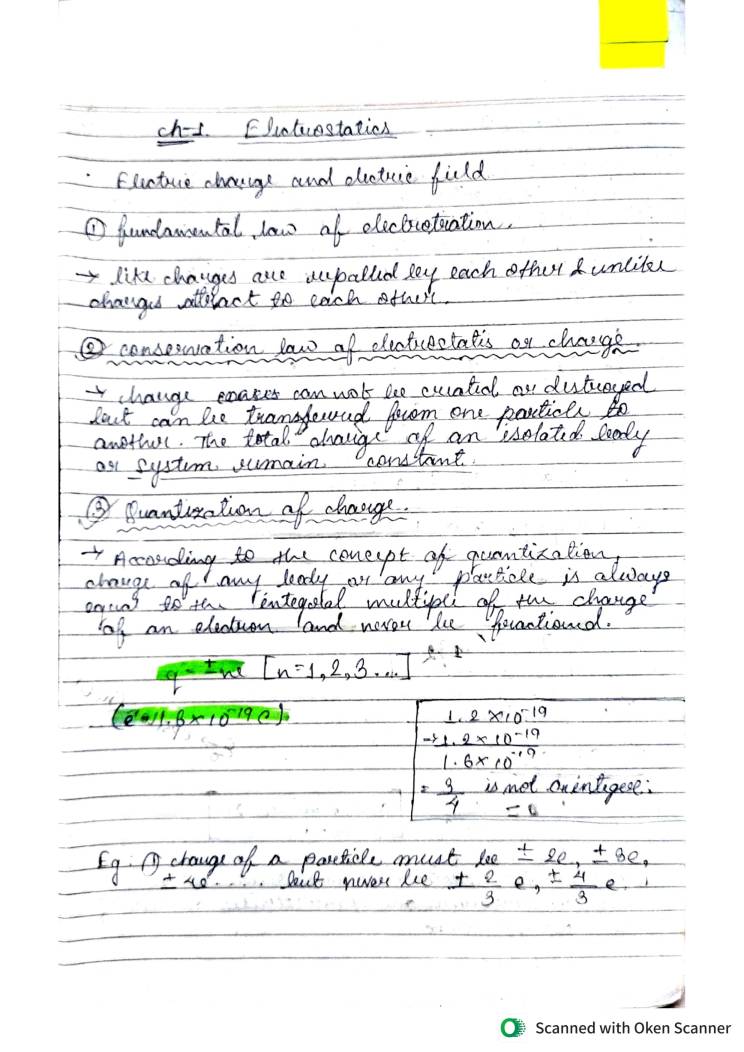 ch-1. Electrostatics
· Electric charge and electric field
① fundamental law of electrostration.
→ like charges are repalled by each other & unlike
charges attract to each other.
② conservation law of electrostatis or charge.
→ charge can not be created or destroyed
but can be transferred from one particle to
another. The total charge of an isolated body
or system remain constant.
③ Quantization of charge.
→ According to the concept of quantization,
charge of any body or any particle is always
equal to the integral multiple of the charge
of an electron and never be fractioned.
q = ±ne [n=1,2,3....]
(e = 1.6×10⁻¹⁹C).
1.2×10⁻¹⁹
→ 1.2×10⁻¹⁹
1.6×10⁻¹⁹
= 3/4 is not an integer.
Eg. ① charge of a particle must be ± 2e, ± 3e,
± 4e ..... but never be ± 2/3 e, ± 4/3 e.
Scanned with Oken Scanner